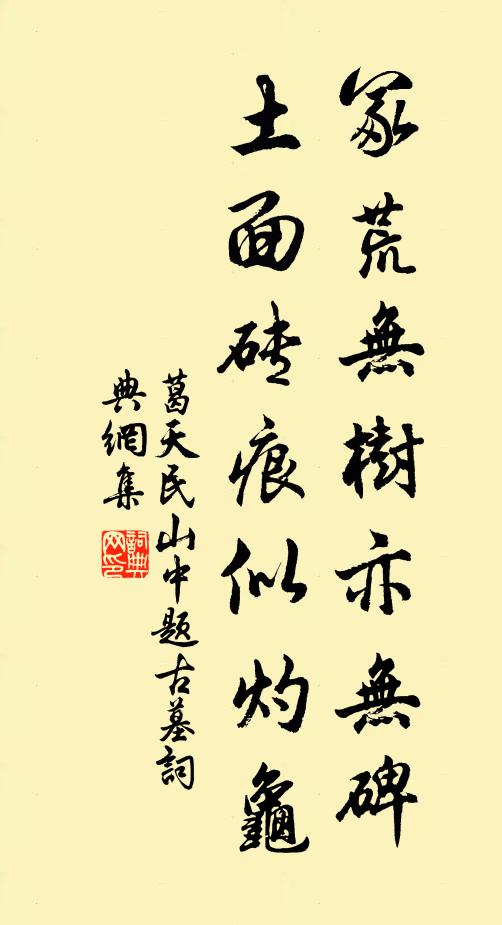 冢荒無樹亦無碑
土面砖痕似灼龜
葛天民山中题古墓詞
典網集
詞典网印